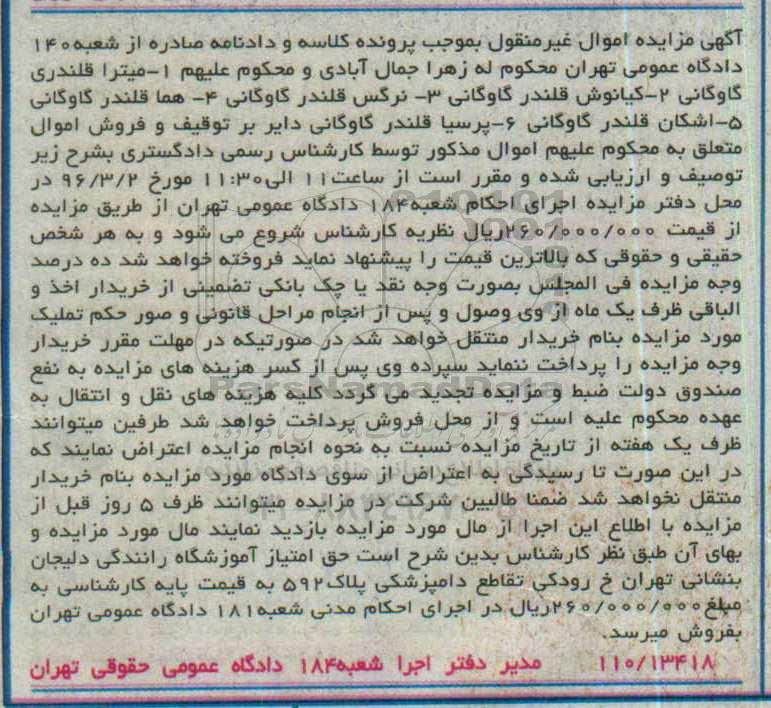 آگهی مزایده اموال غیرمنقول بموجب پرونده کلاسه و دادنامه صادره از شعبه۱۴۰
دادگاه عمومی تهران محکوم له زهرا جمال آبادی و محکوم علیهم ۱-میترا قلندری
گاوگانی ۲-کیانوش قلندر گاوگانی ۳- نرگس قلندر گاوگانی ۴- هما قلندر گاوگانی
۵-اشکان قلندر گاوگانی ۶-پرسیا قلندر گاوگانی دایر بر توقیف و فروش اموال
متعلق به محکوم علیهم اموال مذکور توسط کارشناس رسمی دادگستری بشرح زیر
توصیف و ارزیابی شده و مقرر است از ساعت۱۱ الی۱۱:۳۰ مورخ ۹۶/۳/۲ در
محل دفتر مزایده اجرای احکام شعبه۱۸۴ دادگاه عمومی تهران از طریق مزایده
از قیمت ۲۶۰/۰۰۰/۰۰۰ریال نظریه کارشناس شروع می شود و به هر شخص
حقیقی و حقوقی که بالاترین قیمت را پیشنهاد نماید فروخته خواهد شد ده درصد
وجه مزایده فی المجلس بصورت وجه نقد یا چک بانکی تضمینی از خریدار اخذ و
الباقی ظرف یک ماه از وی وصول و پس از انجام مراحل قانونی و صور حکم تملیک
مورد مزایده بنام خریدار منتقل خواهد شد در صورتیکه در مهلت مقرر خریدار
وجه مزایده را پرداخت ننماید سپرده وی پس از کسر هزینه های مزایده به نفع
صندوق دولت ضبط و مزایده تجدید می گردد کلیه هزینه های نقل و انتقال به
عهده محکوم علیه است و از محل فروش پرداخت خواهد شد طرفین میتوانند
ظرف یک هفته از تاریخ مزایده نسبت به نحوه انجام مزایده اعتراض نمایند که
در این صورت تا رسیدگی به اعتراض از سوی دادگاه مورد مزایده بنام خریدار
منتقل نخواهد شد ضمنا طالبین شرکت در مزایده میتوانند ظرف ۵ روز قبل از
مزایده با اطلاع این اجرا از مال مورد مزایده بازدید نمایند مال مورد مزایده و
بهای آن طبق نظر کارشناس بدین شرح است حق امتیاز آموزشگاه رانندگی دلیجان
بنشانی تهران خ رودکی تقاطع دامپزشکی پلاک۵۹۲ به قیمت پایه کارشناسی به
مبلغ۲۶۰/۰۰۰/۰۰۰ریال در اجرای احکام مدنی شعبه۱۸۱ دادگاه عمومی تهران
بفروش میرسد.
۱۱۰/۱۳۴۱۸ مدیر دفتر اجرا شعبه۱۸۴ دادگاه عمومی حقوقی تهران
ParsNamadData